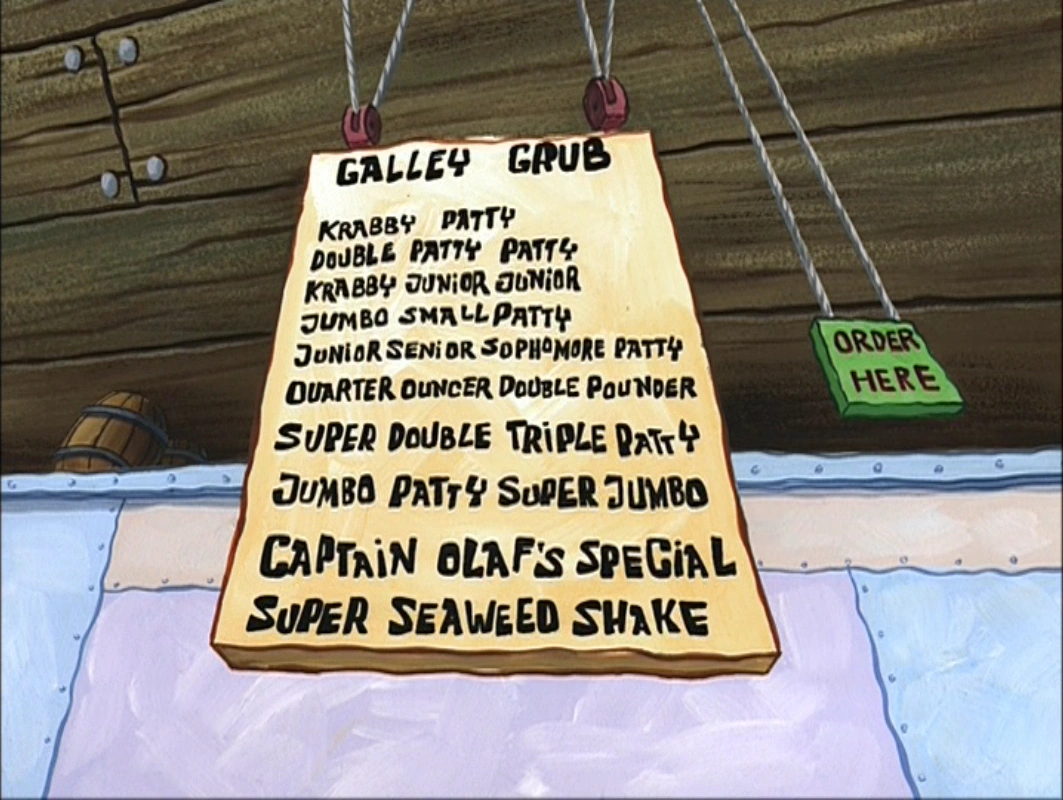 GALLEY GRUB
KRABBY PATTY
DOUBLE PATTY PATTY
KRABBY JUNiOR JUNiOR
JUMBO SMALL PATTY
JUNiOR SENiOR SOPHOMORE PATTY
QUARTER OUNCER DOUBLE POUNDER
SUPER DOUBLE TRiPLE PATTY
JUMBO PATTY SUPER JUMBO
CAPTAiN OLAF'S SPECiAL
SUPER SEAWEED SHAKE
ORDER
HERE